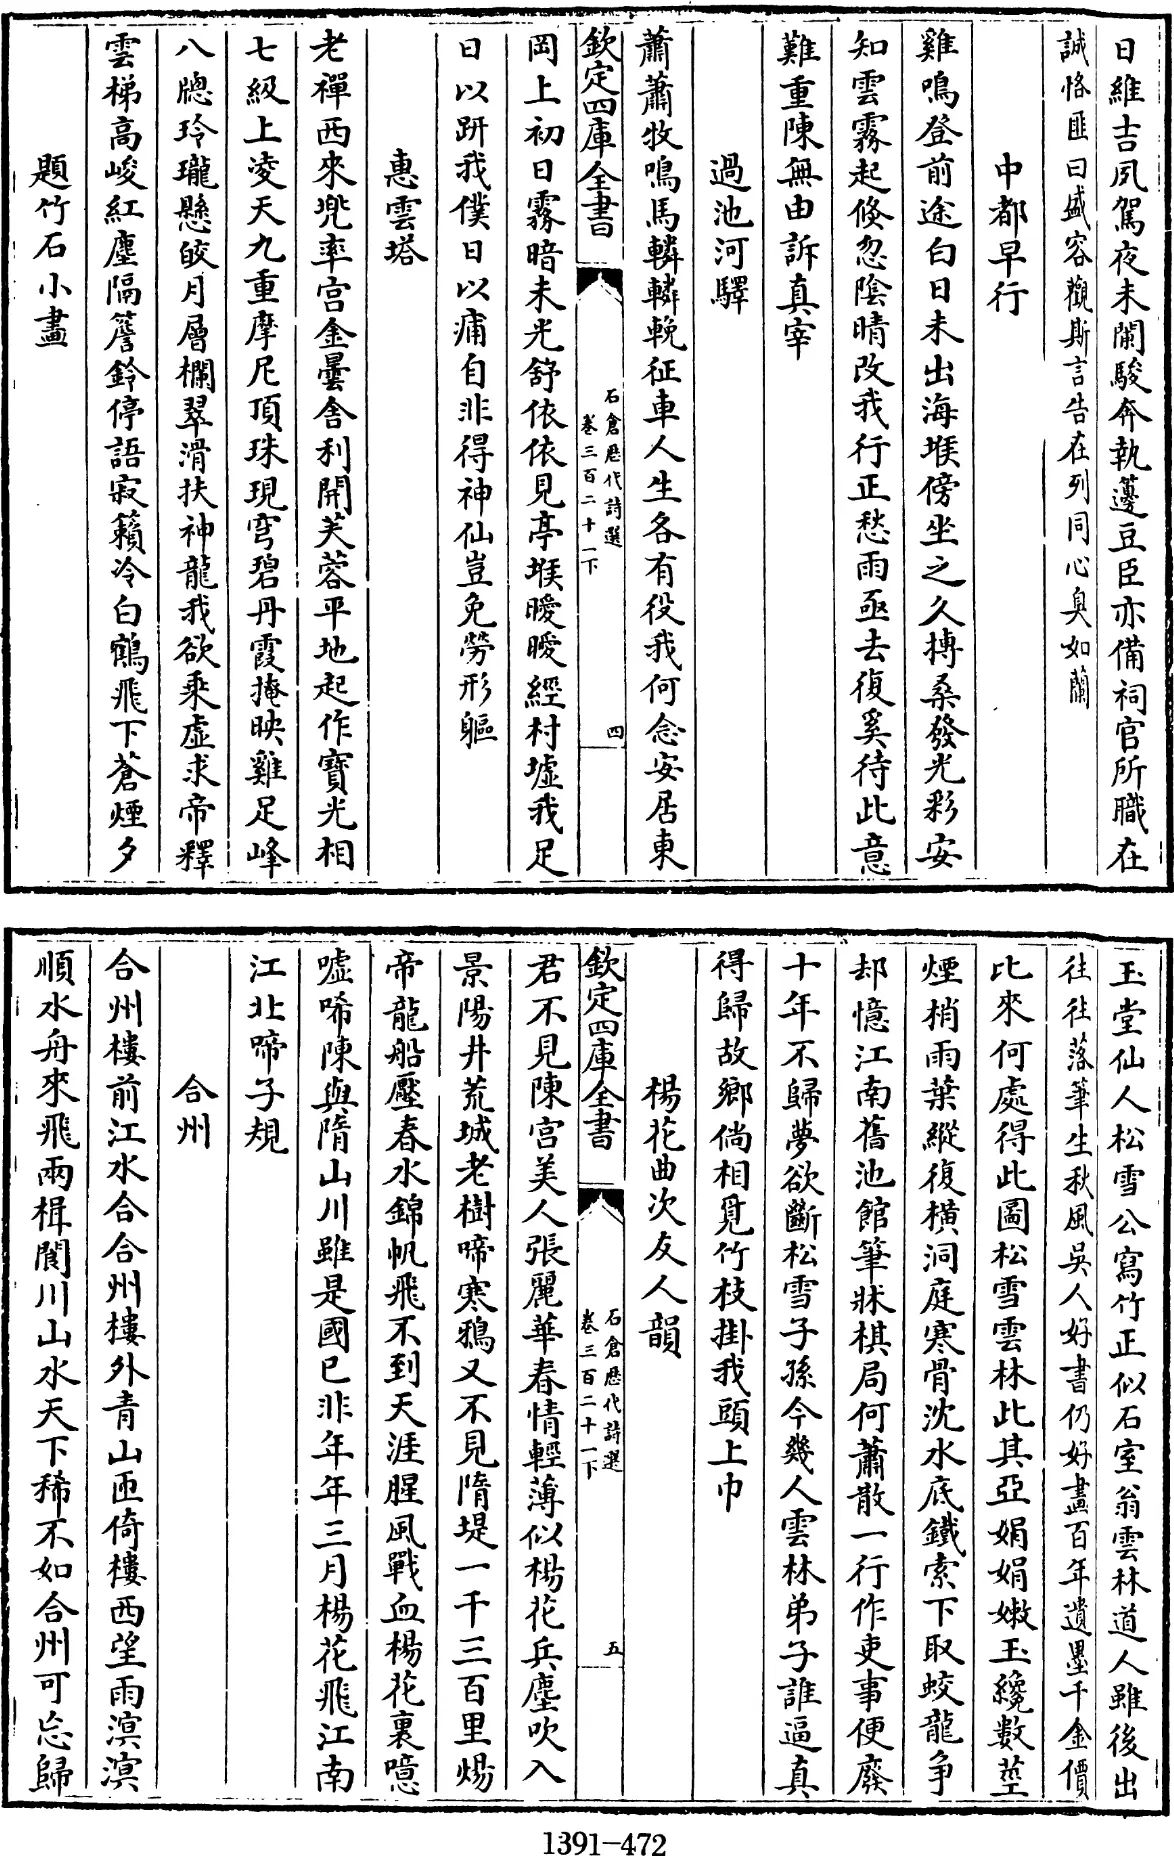 日維吉夙駕夜未闌駿奔執籩豆臣亦備祠官所職在
誠恪匪曰盛容觀斯言告在列同心臭如蘭
中都早行
雞鳴登前途白日未出海堠傍坐之久摶桑發光彩安
知雲霧起倏忽陰晴改我行正愁雨亟去復奚待此意
難重陳無由訴真宰
過池河驛
蕭蕭牧鳴馬轔轔輓征車人生各有役我何念安居東
欽定四庫全書
石倉歷代詩選
卷三百二十一下
四
岡上初日霧暗未光舒依依見亭堠曖曖經村墟我足
日以趼我僕日以痡自非得神仙豈免勞形軀
惠雲塔
老禪西來兜率宮金曇舍利開芙蓉平地起作寶光相
七級上凌天九重摩尼頂珠現穹碧丹霞掩映雞足峰
八牕玲瓏懸皎月層欄翠滑扶神龍我欲乘虛求帝釋
雲梯高峻紅塵隔簷鈴停語寂籟冷白鶴飛下蒼煙夕
題竹石小畫
玉堂仙人松雪公寫竹正似石室翁雲林道人雖後出
往往落筆生秋風吳人好書仍好畫百年遺墨千金價
比來何處得此圖松雪雲林此其亞娟娟嫩玉纔數莖
煙梢雨葉縱復橫洞庭寒骨沈水底鐵索下取蛟龍爭
却憶江南舊池館筆牀棋局何蕭散一行作吏事便廢
十年不歸夢欲斷松雪子孫今幾人雲林弟子誰逼真
得歸故鄉倘相覓竹枝掛我頭上巾
楊花曲次友人韻
欽定四庫全書
石倉歷代詩選
卷三百二十一下
五
君不見陳宮美人張麗華春情輕薄似楊花兵塵吹入
景陽井荒城老樹啼寒鴉又不見隋堤一千三百里煬
帝龍船壓春水錦帆飛不到天涯腥風戰血楊花裏噫
嘘唏陳與隋山川雖是國已非年年三月楊花飛江南
江北啼子規
合州
合州樓前江水合合州樓外青山匝倚樓西望雨溟溟
順水舟來飛兩楫閬川山水天下稀不如合州可忘歸
1391-472